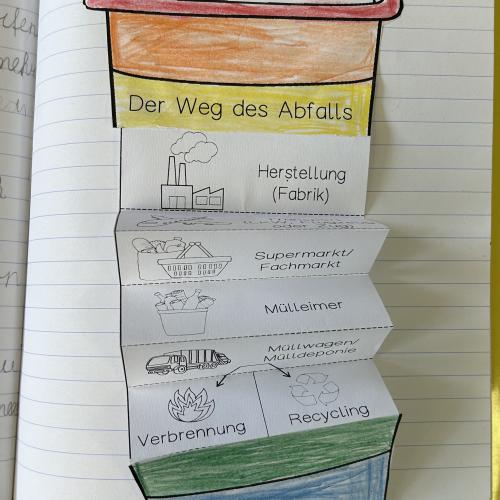 Der Weg des Abfalls
Herstellung
(Fabrik)
oder Zug)
Supermarkt/
Fachmarkt
Mülleimer
Müllwagen/
Mülldeponie
Verbrennung
Recycling